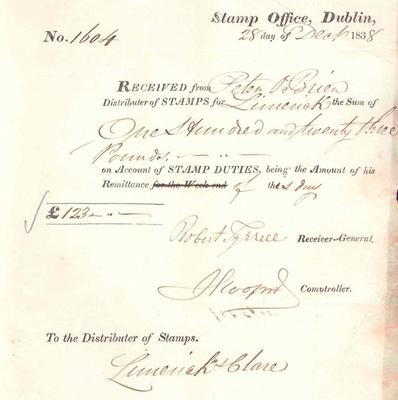 Stamp Office, Dublin,
No. 1604
28 day of Dec. 1838
RECEIVED from Peter O'Brien
Distributer of STAMPS for Limerick the Sum of
One Hundred and twenty three
Pounds
on Account of STAMP DUTIES, being the Amount of his
Remittance for the Week end of this day
£ 123
Robert Tyrrell Receiver-General.
Comptroller.
To the Distributer of Stamps.
Limerick & Clare